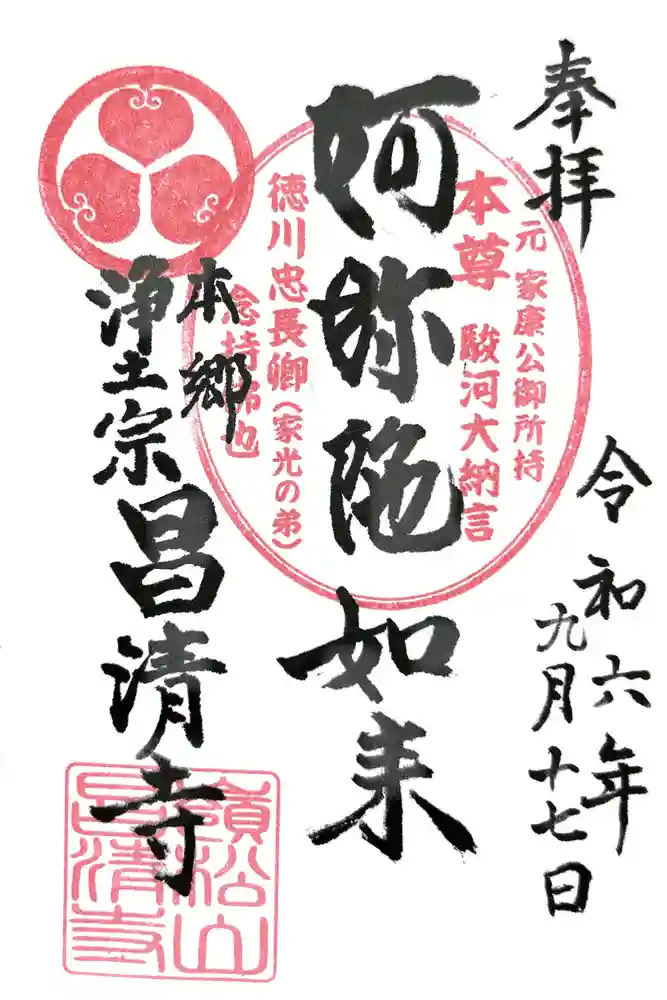 奉拝
令和六年
九月十七日
元 家康公御所持
本尊 駿河大納言
阿弥陀如来
徳川忠長卿(家光の弟)
念持
也
本郷
浄土宗
昌清寺
嶺松山
昌清寺